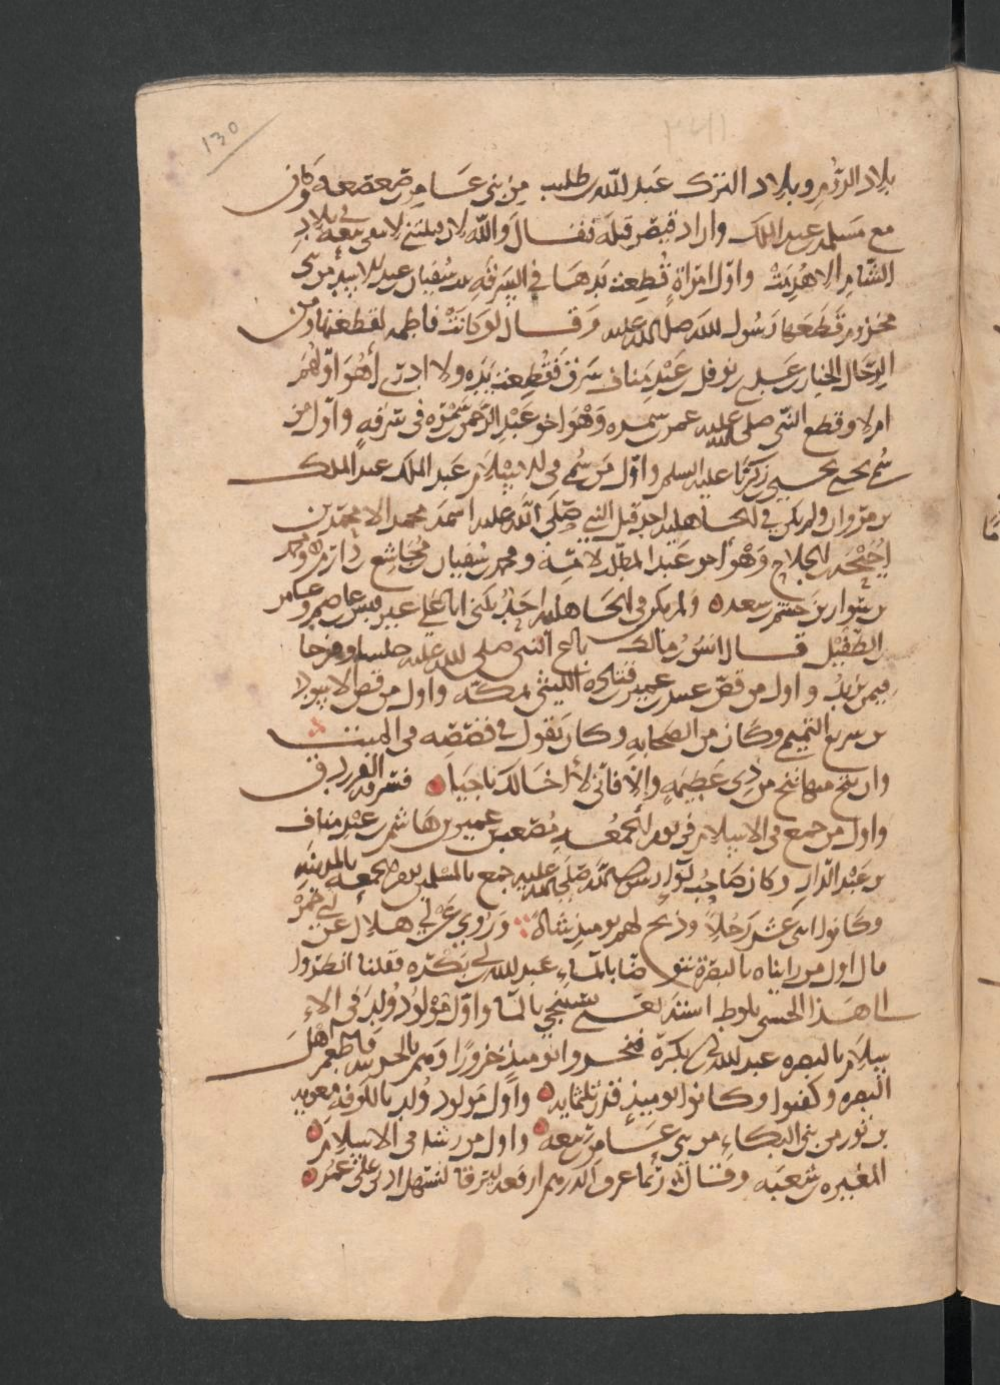 130
بلاد الروم وبلاد الترك عبد الله بن طليب من بني عامر بن صعصعه وكان
مع مسلمه بن عبد الملك واراد قيصر قتله فقال والله لان قتلتني لا تبقى بيعه في بلاد
الشام الا هدمت واول امراة قطعت يدها في السرقه بنت سفيان بن عبد الاسد من بني
مخزوم قطعها رسول الله صلى الله عليه وقال لو كانت فاطمه لقطعتها ومن
الرجال الخيار بن عدي بن نوفل بن عبد مناف سرق فقطعت يده ولا ادري أهو اولهم
ام لا وقطع النبي صلى الله عليه عمر بن سمره وهو اخو عبد الرحمن بن سمره في سرقه واول من
سمي يحيى يحيى بن زكريا عليه السلم واول من سمي في الاسلام عبد الملك عبد الملك
بن مروان ولم يكن في الجاهليه احد قبل النبي صلى الله عليه اسمه محمد الا محمد بن
احيحة بن الجلاح وهو اخو عبد المطلب لامه ومحمد بن سفيان بن مجاشع بن دارم ومحمد
بن سوار بن جشم بن سعد ولم يكن في الجاهليه احد يكنى ابا علي غير قيس بن عاصم وعامر
بن الطفيل قال انس بن مالك بايع النبي صلى الله عليه
واول من قص عبيد بن عمير بن قتادة الليثي بمكه واول من قص الاسود
بن سريع التميمي وكان من الصحابه وكان يقول في قصصه في الميت
وان تنج منها تنج من ذي عظيمه والا فاني لا أخالك ناجيا فسرقه الفرزدق
واول من جمع في الاسلام في يوم الجمعه مصعب بن عمير بن هاشم بن عبد مناف
بن عبد الدار وكان صاحب لواء رسول الله صلى الله عليه جمع بالمسلمين يوم الجمعه بالمدينه
وكانوا اثنى عشر رجلا وذبح لهم يومئذ شاة وروي عن ابي هلال عن ابي حمزة
قال اول من رايناه بالبصرة توضا بالماء عبد الله بن ابي بكره فقلنا انظروا
الى هذا الحبشي يلوط استه يعني يستنجي بالماء واول مولود ولد في الا
سلام بالبصره عبد الله بن ابي بكرة فنحروا يومئذ جزورا وهم بالخريبه فاطعم اهل
البصره وكفتهم وكانوا يومئذ قدر ثلثمايه واول مولود ولد بالكوفه معويه
بن ثور من بني البكاء من بني عامر بن صعصعه واول من رشا في الاسلام
المغيره بن شعبه وقال ربما عرق الدرهم في يدي ارفعه ليرفا ليسهل اذني على عمر